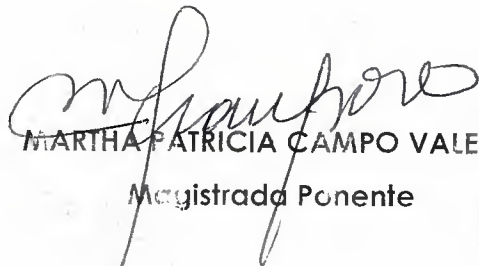 MARTHA PATRICIA CAMPO VALE
Magistrada Ponente